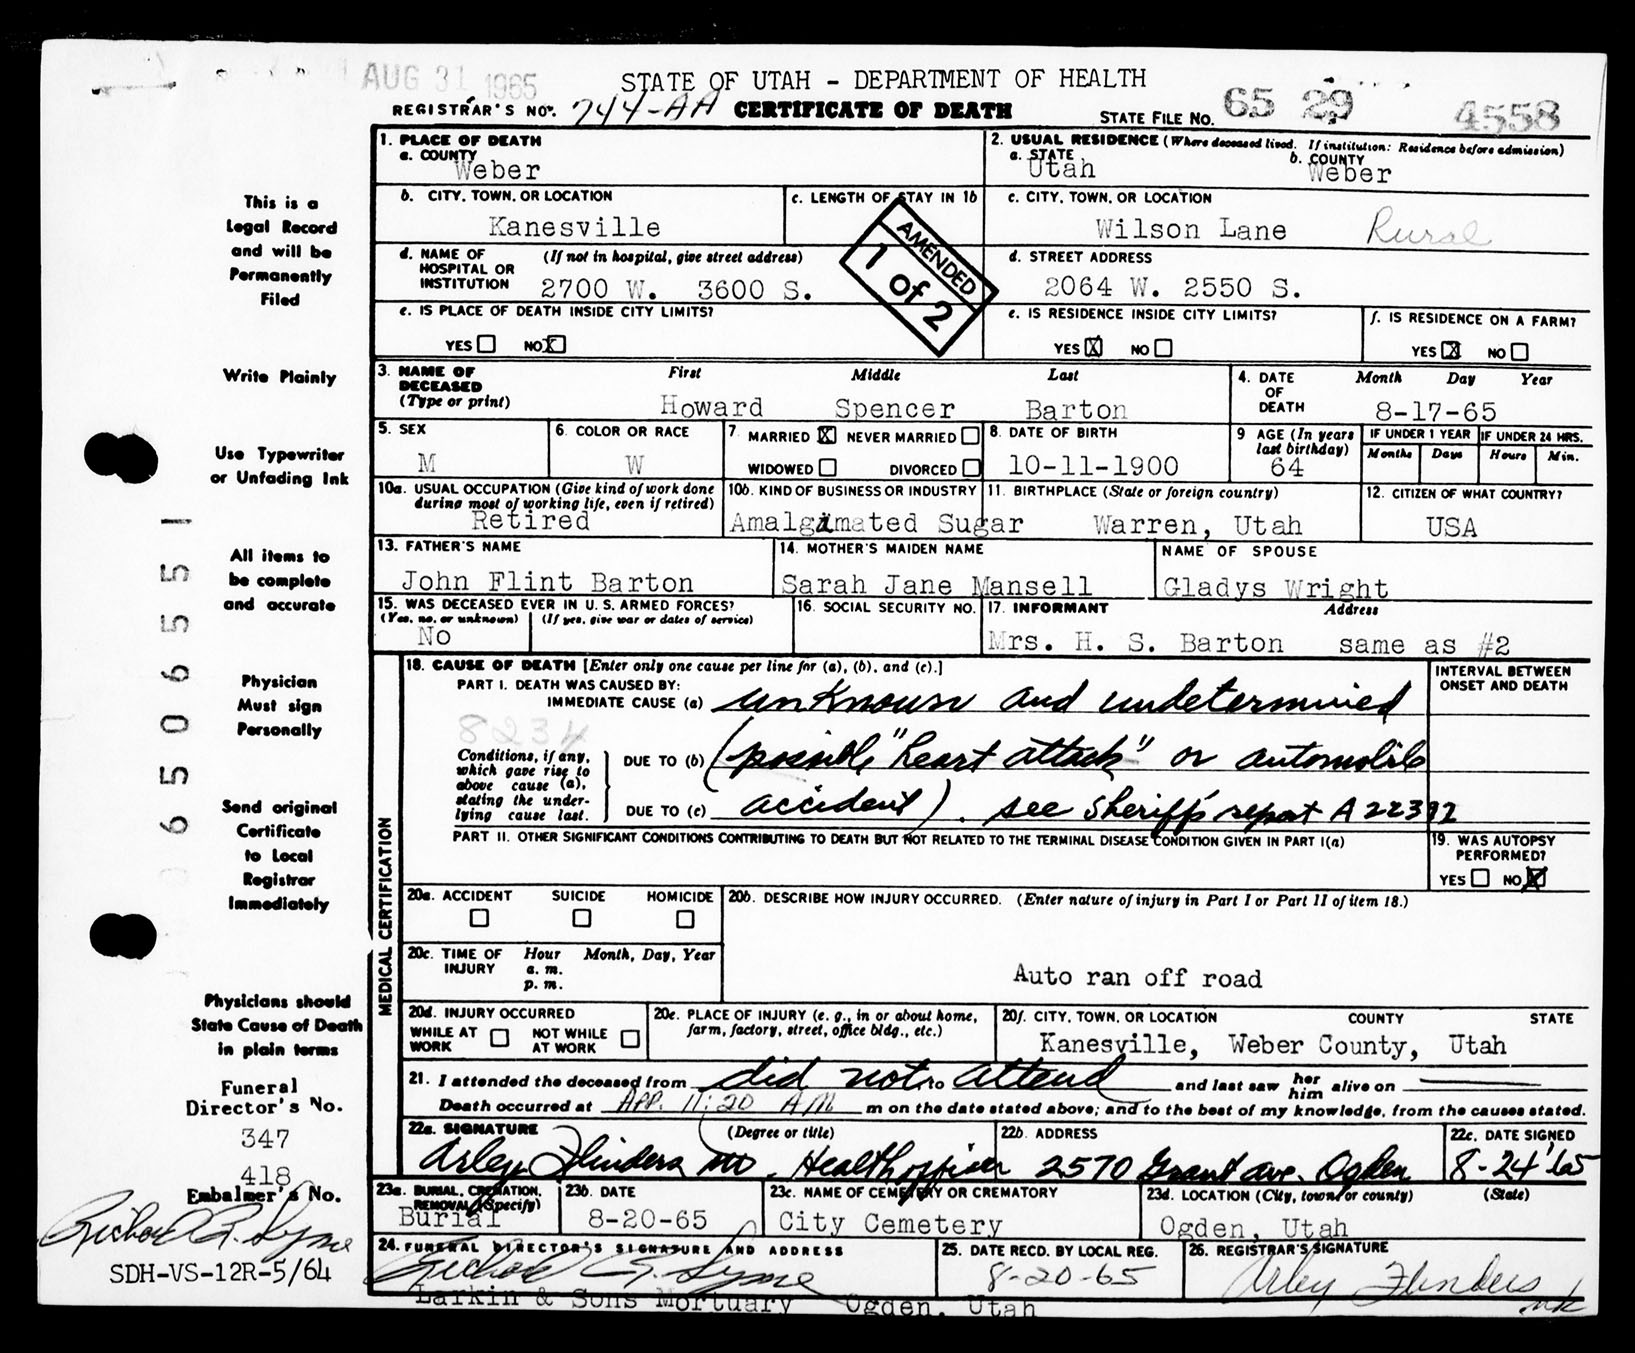 AUG 31 1965
STATE OF UTAH - DEPARTMENT OF HEALTH
REGISTRAR'S NO. 744-AA CERTIFICATE OF DEATH STATE FILE NO. 65 29 4558
1. PLACE OF DEATH
a. COUNTY
Weber
2. USUAL RESIDENCE (Where deceased lived. If institution: Residence before admission)
a. STATE b. COUNTY
Utah Weber
b. CITY, TOWN, OR LOCATION
Kanesville
c. LENGTH OF STAY IN 1b
c. CITY, TOWN, OR LOCATION
Wilson Lane Rural
AMENDED
1 of 2
d. NAME OF HOSPITAL OR INSTITUTION (If not in hospital, give street address)
2700 W. 3600 S.
d. STREET ADDRESS
2064 W. 2550 S.
e. IS PLACE OF DEATH INSIDE CITY LIMITS?
YES NO X
e. IS RESIDENCE INSIDE CITY LIMITS?
YES X NO
f. IS RESIDENCE ON A FARM?
YES X NO
3. NAME OF DECEASED (Type or print) First Middle Last
Howard Spencer Barton
4. DATE OF DEATH Month Day Year
8-17-65
5. SEX
M
6. COLOR OR RACE
W
7. MARRIED X NEVER MARRIED
WIDOWED DIVORCED
8. DATE OF BIRTH
10-11-1900
9 AGE (In years last birthday)
64
IF UNDER 1 YEAR IF UNDER 24 HRS.
Months Days Hours Min.
10a. USUAL OCCUPATION (Give kind of work done during most of working life, even if retired)
Retired
10b. KIND OF BUSINESS OR INDUSTRY
Amalgamated Sugar
11. BIRTHPLACE (State or foreign country)
Warren, Utah
12. CITIZEN OF WHAT COUNTRY?
USA
13. FATHER'S NAME
John Flint Barton
14. MOTHER'S MAIDEN NAME
Sarah Jane Mansell
NAME OF SPOUSE
Gladys Wright
15. WAS DECEASED EVER IN U. S. ARMED FORCES?
(Yes, no, or unknown) (If yes, give war or dates of service)
No
16. SOCIAL SECURITY NO.
17. INFORMANT Address
Mrs. H. S. Barton same as #2
MEDICAL CERTIFICATION
18. CAUSE OF DEATH [Enter only one cause per line for (a), (b), and (c).]
INTERVAL BETWEEN ONSET AND DEATH
PART I. DEATH WAS CAUSED BY:
IMMEDIATE CAUSE (a) unknown and undetermined
8234
Conditions, if any, which gave rise to above cause (a), stating the underlying cause last.
DUE TO (b) (possible "heart attack" or automobile
DUE TO (c) accident). see Sheriff's report A 22392
PART II. OTHER SIGNIFICANT CONDITIONS CONTRIBUTING TO DEATH BUT NOT RELATED TO THE TERMINAL DISEASE CONDITION GIVEN IN PART I(a)
19. WAS AUTOPSY PERFORMED?
YES NO X
20a. ACCIDENT SUICIDE HOMICIDE
20b. DESCRIBE HOW INJURY OCCURRED. (Enter nature of injury in Part I or Part II of item 18.)
Auto ran off road
20c. TIME OF INJURY Hour Month, Day, Year
a. m.
p. m.
20d. INJURY OCCURRED
WHILE AT WORK NOT WHILE AT WORK
20e. PLACE OF INJURY (e. g., in or about home, farm, factory, street, office bldg., etc.)
20f. CITY, TOWN, OR LOCATION COUNTY STATE
Kanesville, Weber County, Utah
21. I attended the deceased from did not to attend and last saw her him alive on
Death occurred at App. 11:20 AM m on the date stated above; and to the best of my knowledge, from the causes stated.
22a. SIGNATURE (Degree or title)
Arley Flinders MD. Health officer
22b. ADDRESS
2570 Grant ave. Ogden
22c. DATE SIGNED
8-24'65
23a. BURIAL, CREMATION, REMOVAL (Specify)
Burial
23b. DATE
8-20-65
23c. NAME OF CEMETERY OR CREMATORY
City Cemetery
23d. LOCATION (City, town, or county) (State)
Ogden, Utah
24. FUNERAL DIRECTOR'S SIGNATURE AND ADDRESS
Richard G. Syme
Larkin & Sons Mortuary Ogden, Utah
25. DATE RECD. BY LOCAL REG.
8-20-65
26. REGISTRAR'S SIGNATURE
Arley Flinders
mk
This is a
Legal Record
and will be
Permanently
Filed
Write Plainly
Use Typewriter
or Unfading Ink
All items to
be complete
and accurate
Physician
Must sign
Personally
Send original
Certificate
to Local
Registrar
Immediately
Physicians should
State Cause of Death
in plain terms
Funeral
Director's No.
347
418
Embalmer's No.
Richard G. Syme
SDH-VS-12R-5/64
06506551